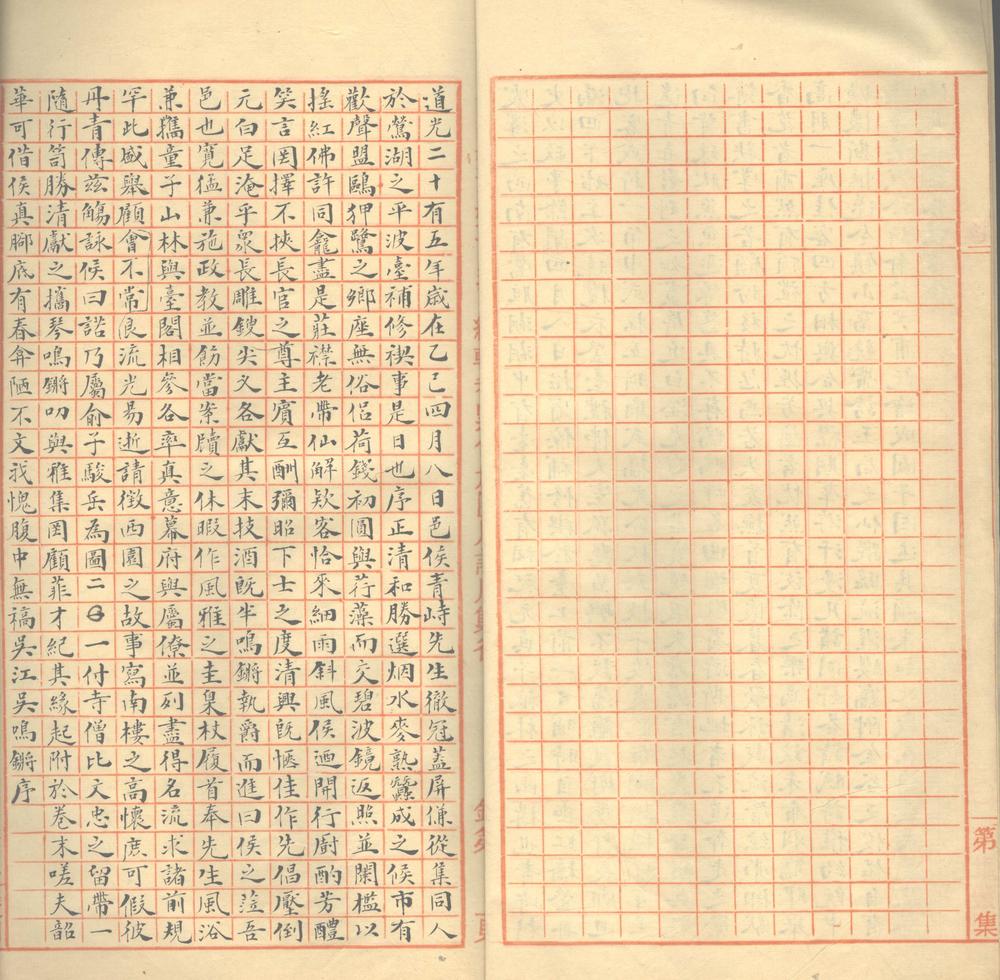 第　集
道光二十有五年歲在乙巳四月八日邑侯青峙先生徹冠蓋屏傔從集同人
於鶯湖之平波臺補修禊事是日也序正清和勝選烟水麥熟蠶成之候市有
歡聲盟鷗狎鷺之鄉座無俗侶荷錢初圓與荇藻而交碧波鏡返照並闌檻以
搖紅佛許同龕盡是莊襟老帶仙解欵客恰來細雨斜風侯迺開行廚酌芳醴
笑言罔擇不挾長官之尊主賓互酬彌昭下士之度清興既愜佳作先倡壓倒
元白足淹乎衆長雕鎪尖叉各獻其末技酒既半鳴鏘執爵而進曰侯之蒞吾
邑也寬猛兼施政教並飭當案牘之休暇作風雅之圭臬杖履首奉先生風浴
兼攜童子山林與臺閣相參各率真意幕府與屬僚並列盡得名流求諸前規
罕此盛舉顧會不常浪流光易逝請徵西園之故事寫南樓之高懷庶可假彼
丹青傳茲觴詠侯曰諾乃屬俞子駿岳為圖二一付寺僧比文忠之留帶一
隨行笥勝清獻之攜琴鳴鏘叨與雅集罔顧菲才紀其緣起附於卷末嗟夫韶
華可借侯真腳底有春弇陋不文我愧腹中無稿吳江吳鳴鏘序